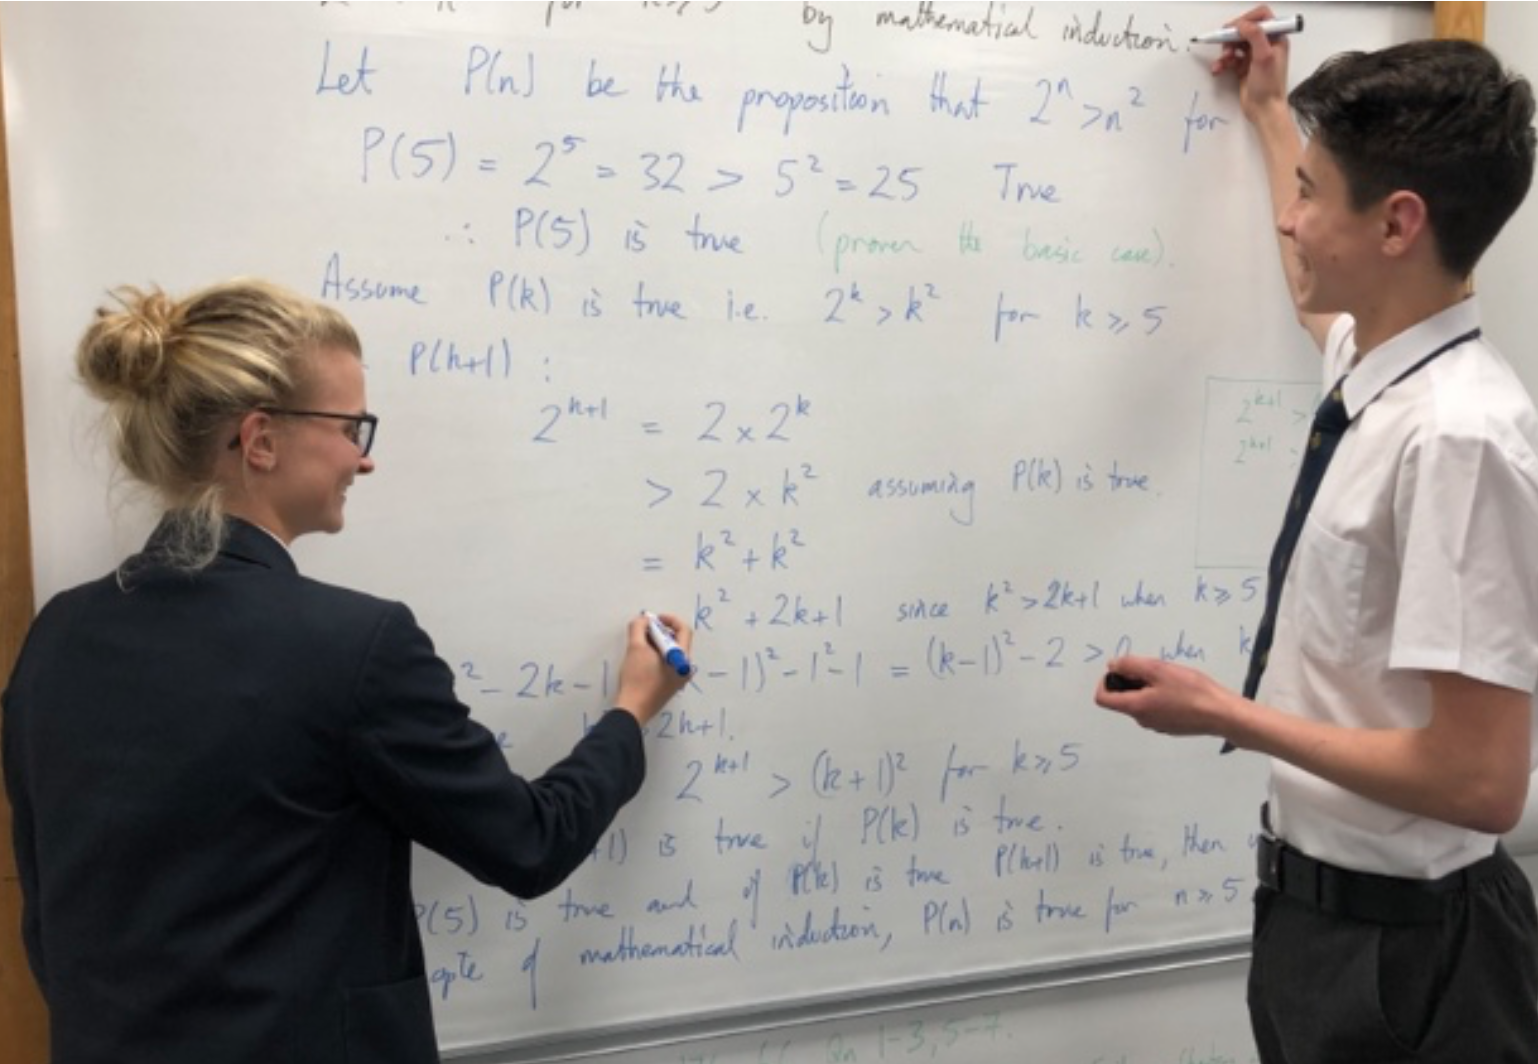 by mathematical induction.
Let P(n) be the proposition that 2ⁿ > n² for
P(5) = 2⁵ = 32 > 5² = 25 True
∴ P(5) is true (proven the basic case).
Assume P(k) is true i.e. 2ᵏ > k² for k ⩾ 5
P(k+1) :
2ᵏ⁺¹ = 2 × 2ᵏ
> 2 × k² assuming P(k) is true.
= k² + k²
k² + 2k+1 since k² > 2k+1 when k ⩾ 5
² - 2k - 1 - 1)² - 1² - 1 = (k-1)² - 2 > 0 when k
2k+1.
2ᵏ⁺¹ > (k+1)² for k ⩾ 5
+1) is true if P(k) is true.
P(5) is true and if P(k) is true P(k+1) is true, then
of mathematical induction, P(n) is true for n ⩾ 5
2ᵏ⁺¹ >
2ᵏ⁺¹ >
Qn 1-3, 5-7.